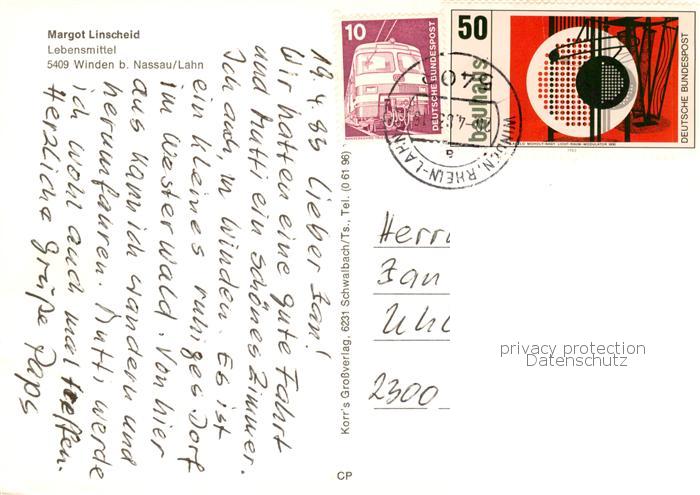 Margot Linscheid
Lebensmittel
5409 Winden b. Nassau/Lahn
19.4.83 Lieber Jan!
Wir hatten eine gute Fahrt
und Mutti ein schönes Zimmer.
Ich auch, in Winden. Es ist
ein kleines ruhiges Dorf
im Westerwald. Von hier
aus kann ich wandern und
herumfahren. Mutti werde
ich wohl auch mal treffen.
Herzliche Grüße Paps
Korr's Großverlag, 6231 Schwalbach/Ts., Tel. (0 61 96)
CP
10
DEUTSCHE BUNDESPOST
50
bauhaus
DEUTSCHE BUNDESPOST
1983
WINDEN, RHEIN-LAHN
a
Herrn
Jan
2300
privacy protection
Datenschutz